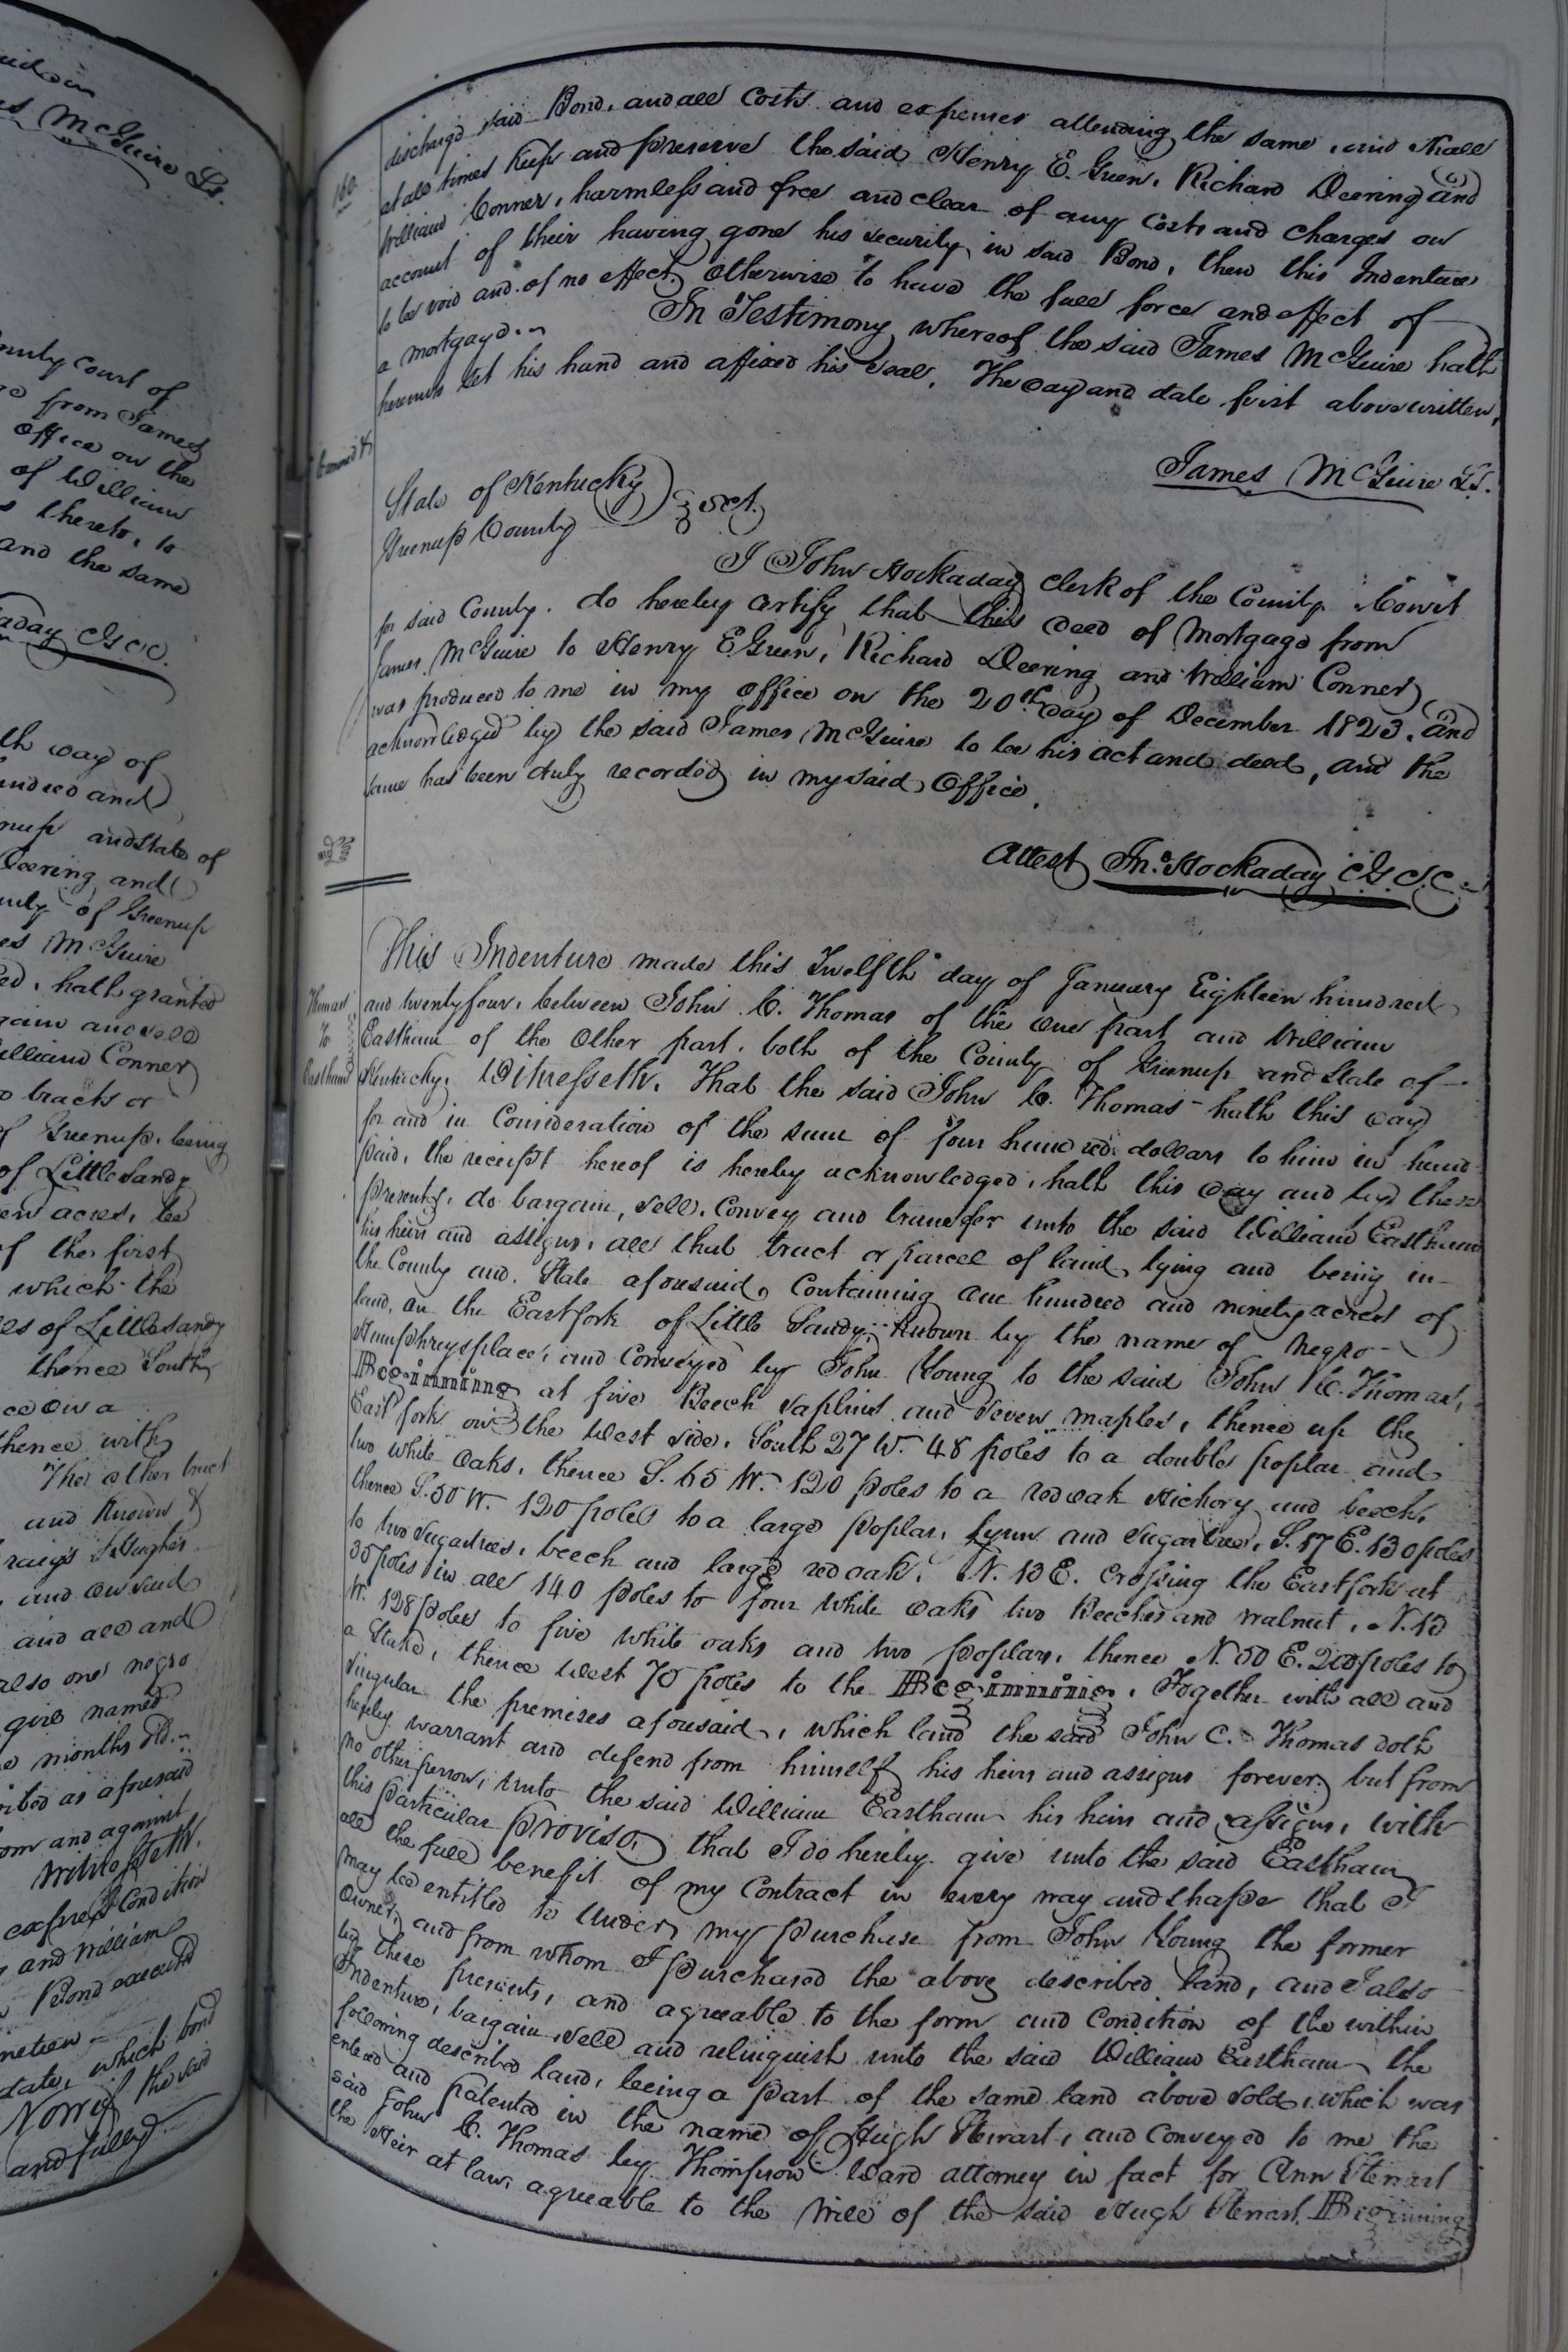 uidain
es McGuire Ls.
nuly Court of
ed from James
Office on the
of William
s thereto, to
and the same
aday CGCC.
th day of
undred and
nup and State of
Deering and
unty of Greenup
es McGuire
ed, hath granted
gain and sell
William Conner
o tracts or
of Greenup, being
of Little Sandy
en acres, be
of the first
which the
es of Little Sandy
thence South
ce on a
thence with
The other tract
and Known
and on said
and all and
also one negro
girl named
months old
ribed as aforesaid
om and against
Witnesseth.
express Condition
and William
Bond executed
neteen
date, which bond
Now if the said
and fully
160
discharge said Bond, and all Costs and expenses attending the same, and shall
at all times keep and preserve the said Henry E. Green, Richard Deering and
William Conner, harmless and free and clear of any Costs and Charges on
account of their having gone his security in said Bond, then this Indenture
to be void and of no effect, Otherwise to have the full force and effect of
a mortgage.
In Testimony whereof the said James McGuire hath
hereunto set his hand and affixed his seal, The day and date first above written,
James McGuire Ls.
State of Kentucky
Greenup County } Sct.
I John Hockaday Clerk of the County Court
for said County, do hereby Certify that this Deed of Mortgage from
James McGuire to Henry E. Green, Richard Deering and William Conner
was produced to me in my office on the 20th day of December 1823, and
acknowledged by the said James McGuire to be his act and deed, and the
same has been duly recorded in my said Office.
Attest Jno. Hockaday C.G.C.C.
Thomas
to
Eastham
This Indenture made this Twelfth day of January Eighteen hundred
and twenty four, between John C. Thomas of the one part and William
Eastham of the Other part, both of the County of Greenup and State of
Kentucky, Witnesseth, That the said John C. Thomas hath this day
for and in Consideration of the sum of four hundred dollars to him in hand
paid, the receipt hereof is hereby acknowledged, hath this day and by these
presents, do bargain, sell, Convey and transfer unto the said William Eastham
his heirs and assigns, all that tract or parcel of land, lying and being in
the County and State aforesaid, Containing one hundred and ninety acres of
land, on the East fork of Little Sandy, Known by the name of Negro
Humphreys place, and Conveyed by John Young to the said John C. Thomas,
Beginning at five Beech saplins and seven maples, thence up the
East fork on the West side, South 27 W. 48 poles to a double poplar and
two white Oaks, thence S. 65 W. 120 poles to a red oak Hickory and beech,
thence S. 50 W. 120 poles to a large poplar, Lynn and Sugartree, S. 17 E. 130 poles
to two Sugartrees, beech and large red oak, N. 13 E. Crossing the East fork at
35 poles in all 140 poles to four White oaks two Beeches and walnut, N. 13
W. 128 poles to five white oaks and two poplars, thence N. 50 E. 200 poles to
a Stake, thence West 70 poles to the Beginning, Together with all and
singular the premises aforesaid, which land the said John C. Thomas doth
hereby warrant and defend from himself his heirs and assigns forever, but from
no other person, unto the said William Eastham his heirs and assigns, with
this particular Proviso, that I do hereby give unto the said Eastham
all the full benefit of my Contract in every way and shape that I
may be entitled to Under my purchase from John Young the former
Owner, and from whom I purchased the above described land, and I also
by these presents, and agreeable to the form and Condition of the within
Indenture, bargain, sell and relinquish unto the said William Eastham the
following described land, being a part of the same land above sold, which was
entered and Patented in the name of Hugh Stewart, and Conveyed to me the
said John C. Thomas by Thompson Ward attorney in fact for Ann Stewart
the Heir at law, agreeable to the Will of the said Hugh Stewart, Beginning